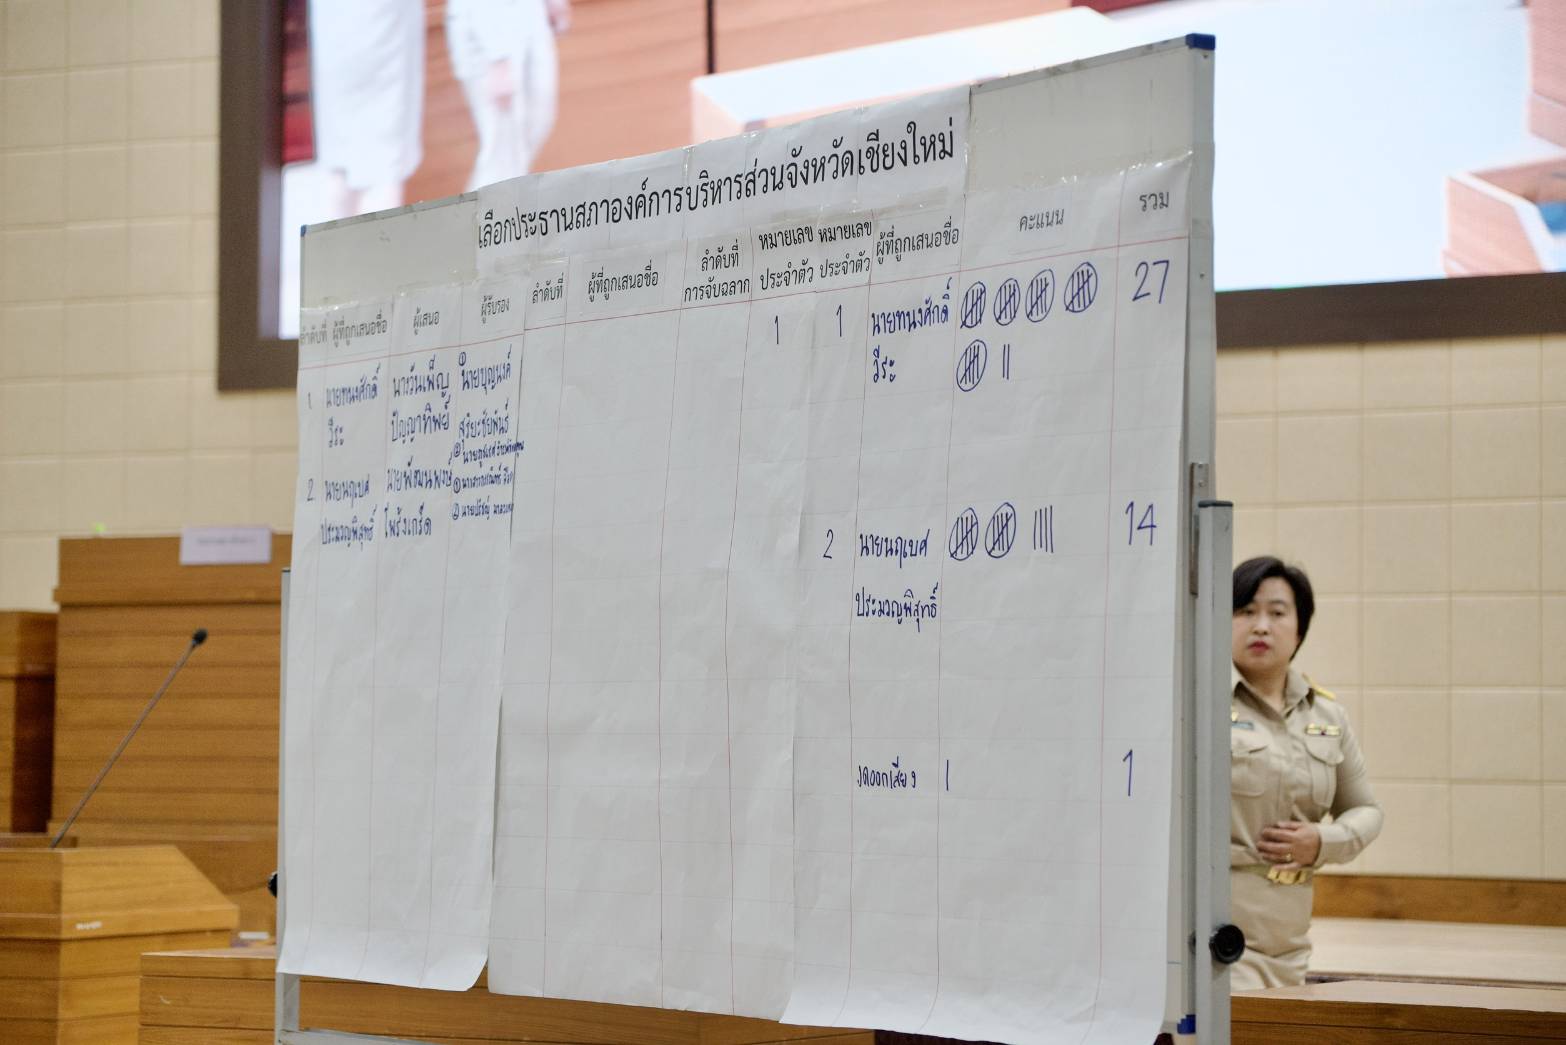 เลือกประธานสภาองค์การบริหารส่วนจังหวัดเชียงใหม่
ลำดับที่ ผู้ที่ถูกเสนอชื่อ ผู้เสนอ ผู้รับรอง
1. นายทนงศักดิ์ นางวันเพ็ญ ① นายบุญนงค์
วีระ ปัญญาทิพย์ สุริยะชัยพันธ์
②
2. นายนฤเบศ นายพัชมนพงษ์ ①
ประมวญพิสุทธิ์ โพธิ์งเกร็ด ② นายปรัชญ์
ลำดับที่ ผู้ที่ถูกเสนอชื่อ ลำดับที่ หมายเลข
การจับฉลาก ประจำตัว
1
หมายเลข ผู้ที่ถูกเสนอชื่อ คะแนน รวม
ประจำตัว
1 นายทนงศักดิ์ 27
วีระ
2 นายนฤเบศ 14
ประมวญพิสุทธิ์
งดออกเสียง 1